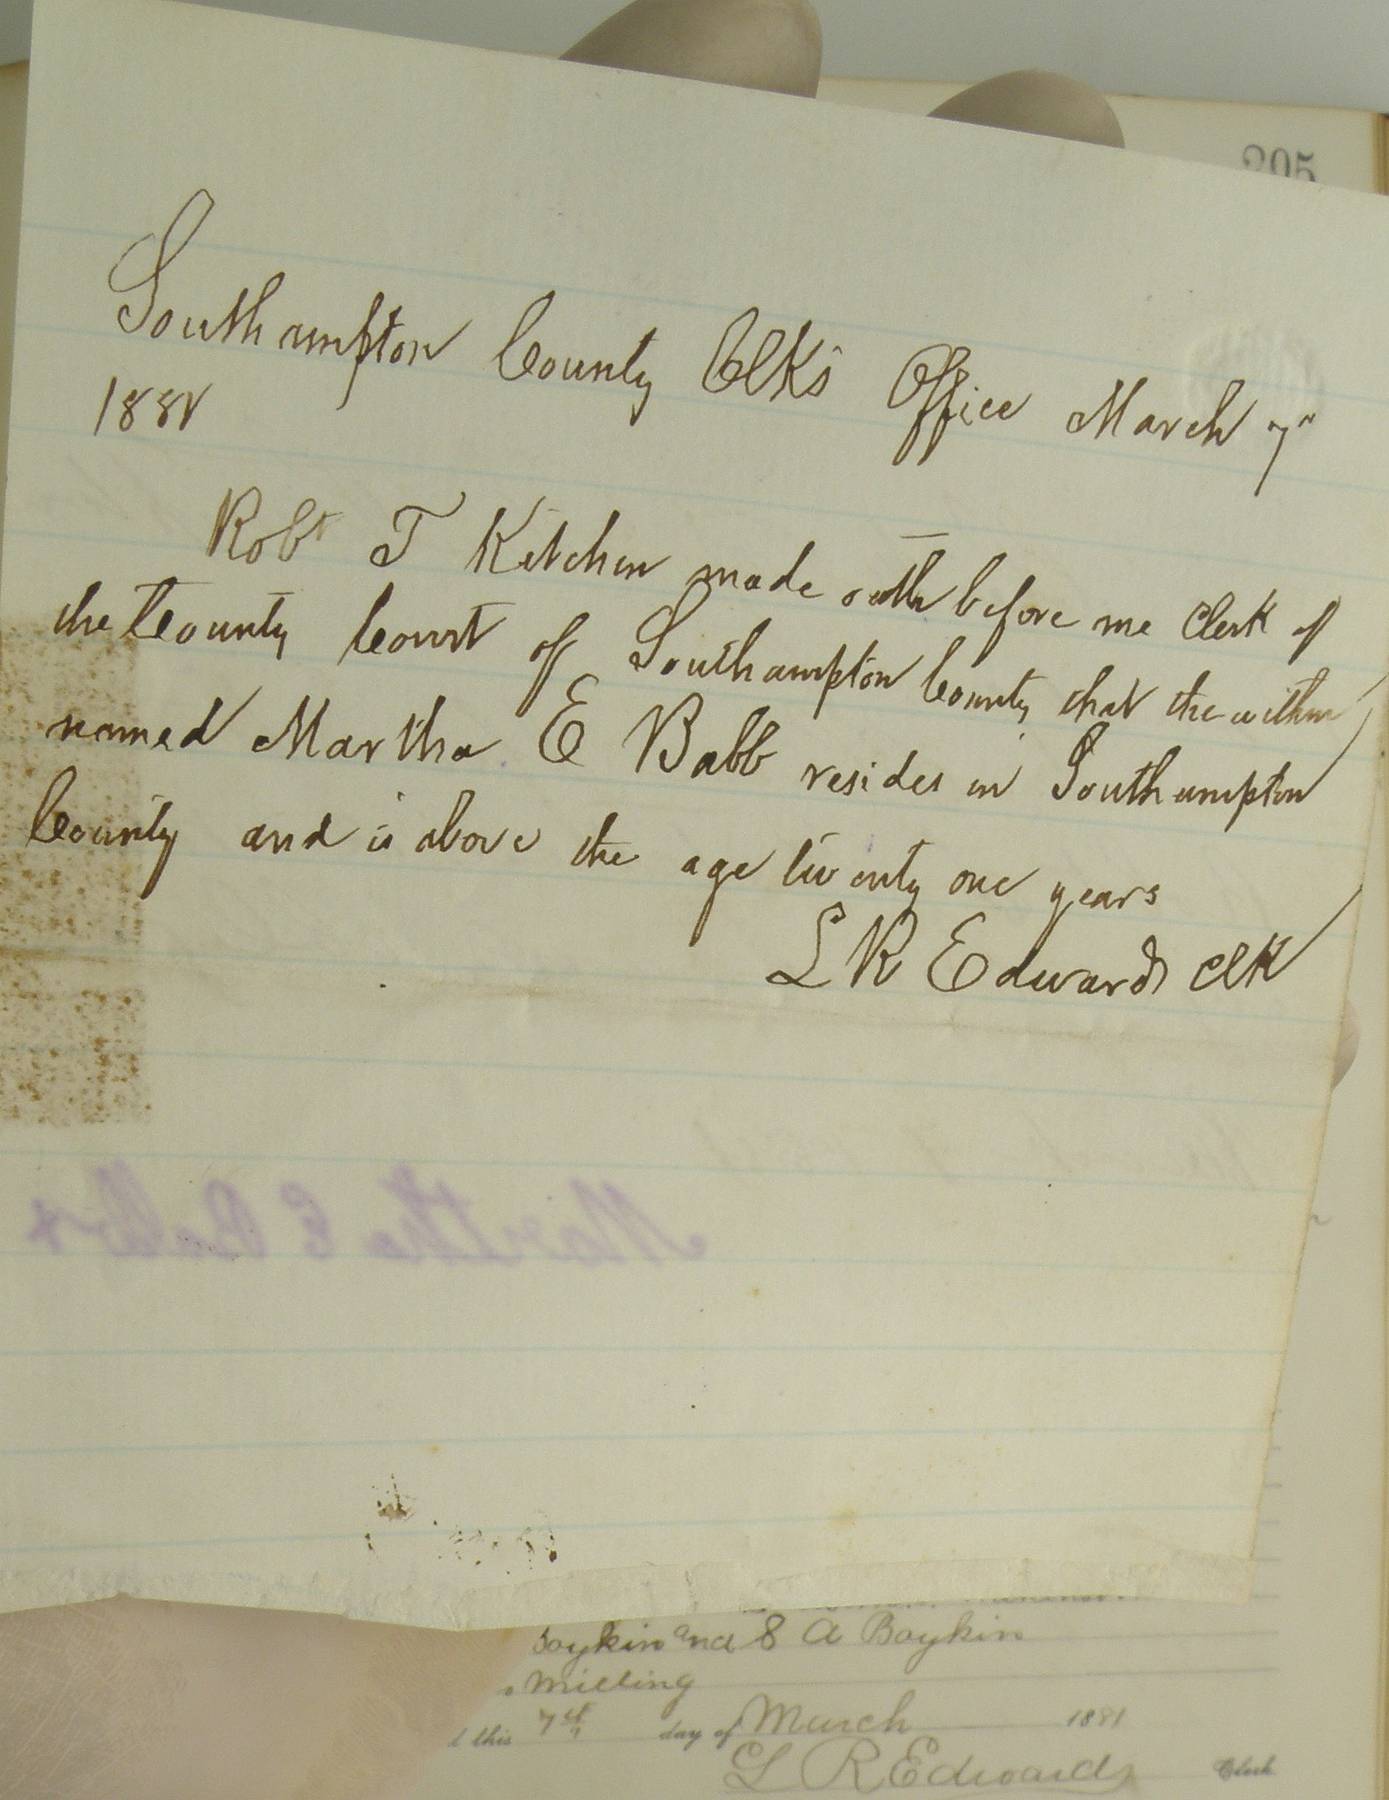 205
Southampton County Clk's Office March 7"
1881
Robt T Kitchen made oath before me Clerk of
the County Court of Southampton County that the within
named Martha E Babb resides in Southampton
County and is above the age twenty one years
L R Edwards Clk
Martha E Babb +
Boykin and S A Boykin
milling
this 7th day of March 1881
L R Edwards Clerk